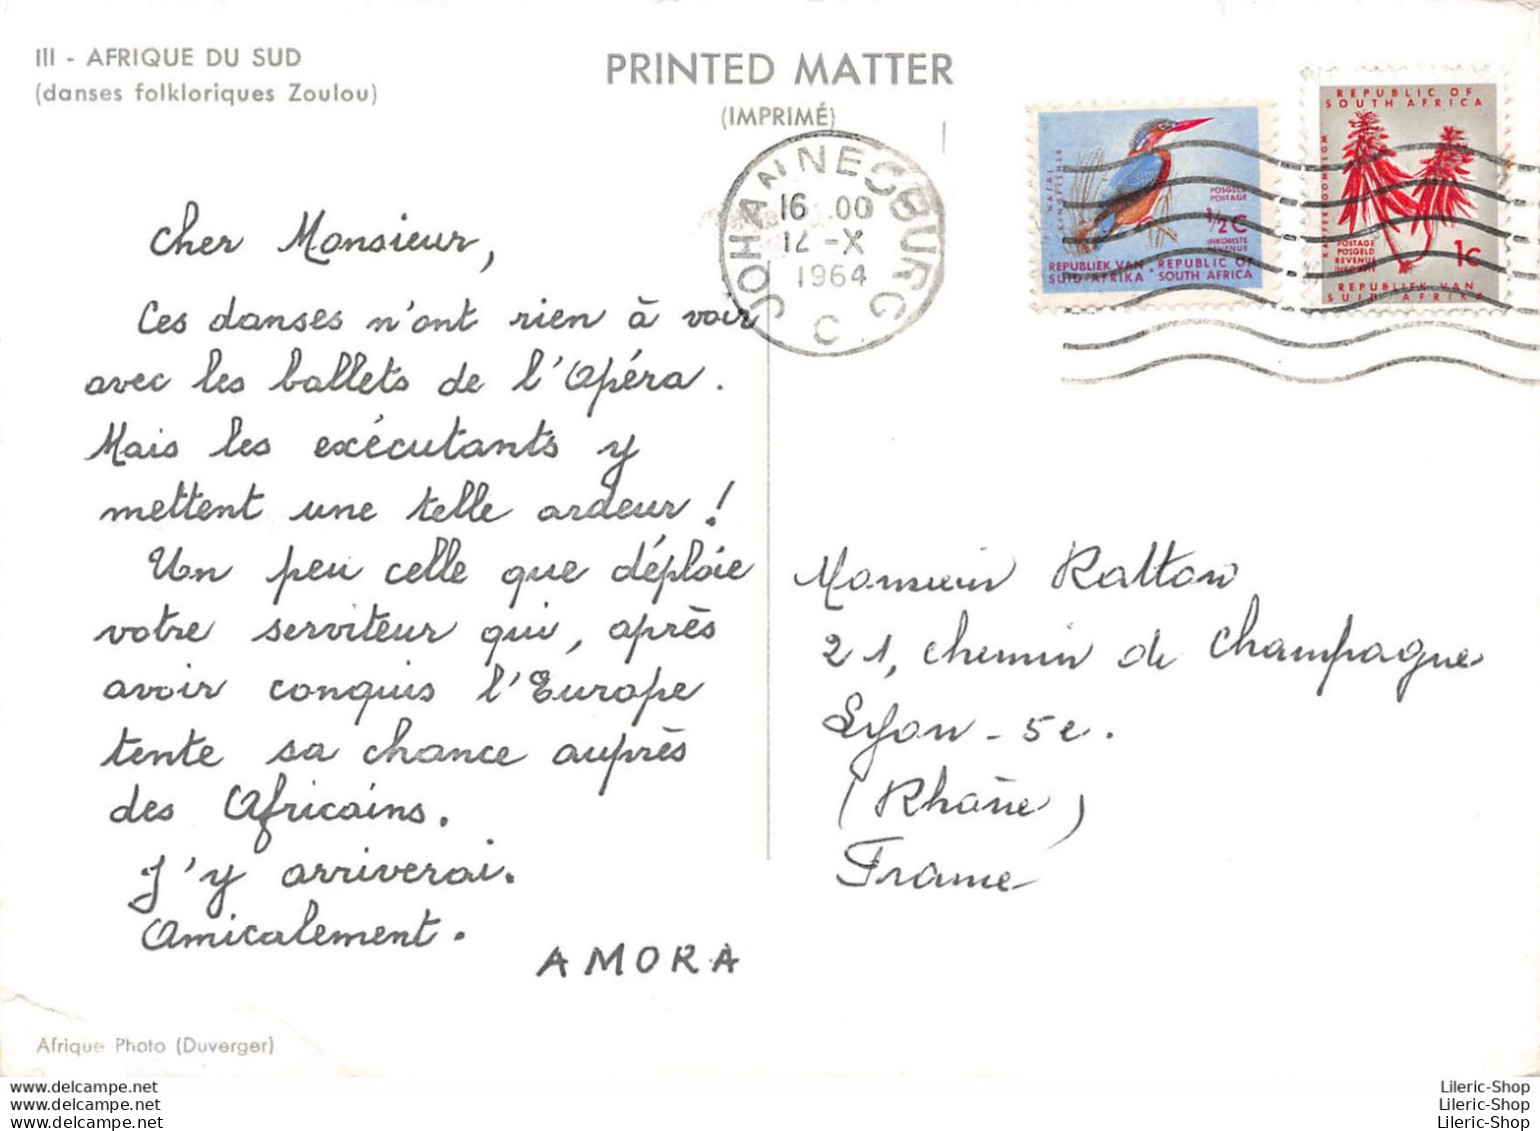 III - AFRIQUE DU SUD
(danses folkloriques Zoulou)
PRINTED MATTER
(IMPRIMÉ)
JOHANNESBURG
16 .00
12 -X
1964
C
NATAL
KINGFISHER
POSGELD
POSTAGE
½C
INKOMSTE
REVENUE
REPUBLIEK VAN • REPUBLIC OF
SUID-AFRIKA SOUTH AFRICA
REPUBLIC OF
SOUTH AFRICA
KAFFERBOOMBLOM
POSTAGE
POSGELD
REVENUE
INKOMSTE
1c
REPUBLIEK VAN
SUID AFRIKA
Cher Monsieur,
Ces danses n'ont rien à voir
avec les ballets de l'Opéra.
Mais les exécutants y
mettent une telle ardeur !
Un peu celle que déploie
votre serviteur qui, après
avoir conquis l'Europe
tente sa chance auprès
des Africains.
J'y arriverai.
Amicalement.
AMORA
Monsieur Ratton
21, chemin de Champagne
Lyon - 5e.
(Rhône)
France
Afrique Photo (Duverger)
www.delcampe.net
www.delcampe.net
www.delcampe.net
Lileric-Shop
Lileric-Shop
Lileric-Shop